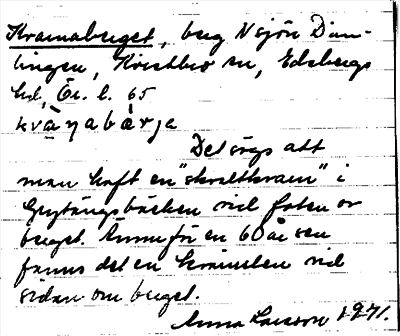 Kramaberget, berg N sjön Dun-
lingen, Kvistbro sn, Edsbergs
hd, Ör. l. 65
Det sägs att
man haft en "skvaltkvarn" i
bäcken vid foten av
berget. Ännu för en 60 år sen
fanns det en kvarnsten vid
sidan om berget.
Anna Larsson 1971.